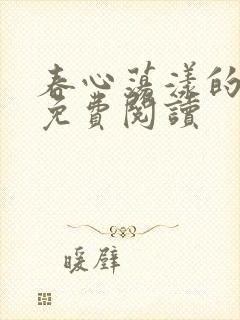 春心蕩漾的
免費閱讀
暖壁